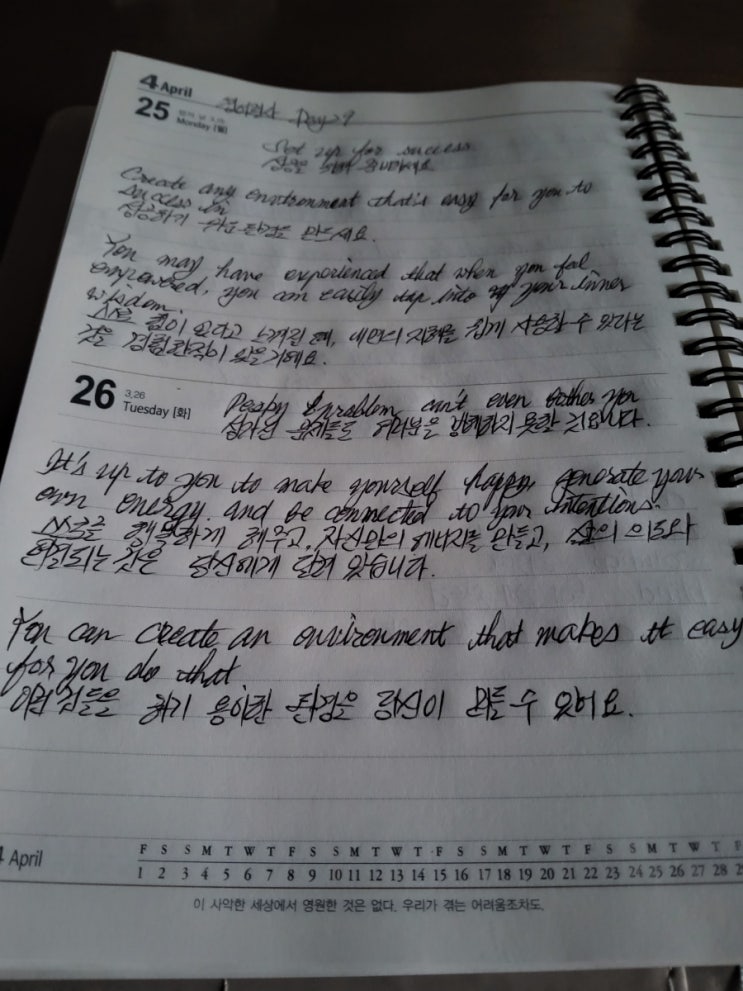 4 April
25 Monday [월]
Day 29
Set up for success
성공을 위해 준비하세요
Create any environment that's easy for you to
success in
성공하기 쉬운 환경을 만드세요.
You may have experienced that when you feel
empowered, you can easily tap into your inner
wisdom.
스스로 힘이 있다고 느껴질 때, 내면의 지혜를 쉽게 사용할 수 있다는
것을 경험한적이 있을거예요.
26 3.26
Tuesday [화]
can't even bother you
문제들로 여러분을 방해하지 못할 것입니다.
It's up to you to make yourself happy, generate your
own energy and be connected to your intentions.
스스로를 행복하게 해주고, 자신만의 에너지를 만들고, 의 의도와
연결되는 것은 당신에게 달려 있습니다.
You can create an environment that makes it easy
for you do that
이런 것들을 하기 용이한 환경을 당신이 만들 수 있어요.
4 April
F S S M T W T F S S M T W T F S S M T W T F S S M T W T F
1 2 3 4 5 6 7 8 9 10 11 12 13 14 15 16 17 18 19 20 21 22 23 24 25 26 27 28 29
이 사악한 세상에서 영원한 것은 없다. 우리가 겪는 어려움조차도.